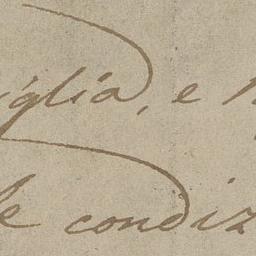 iglia, e
le condiz